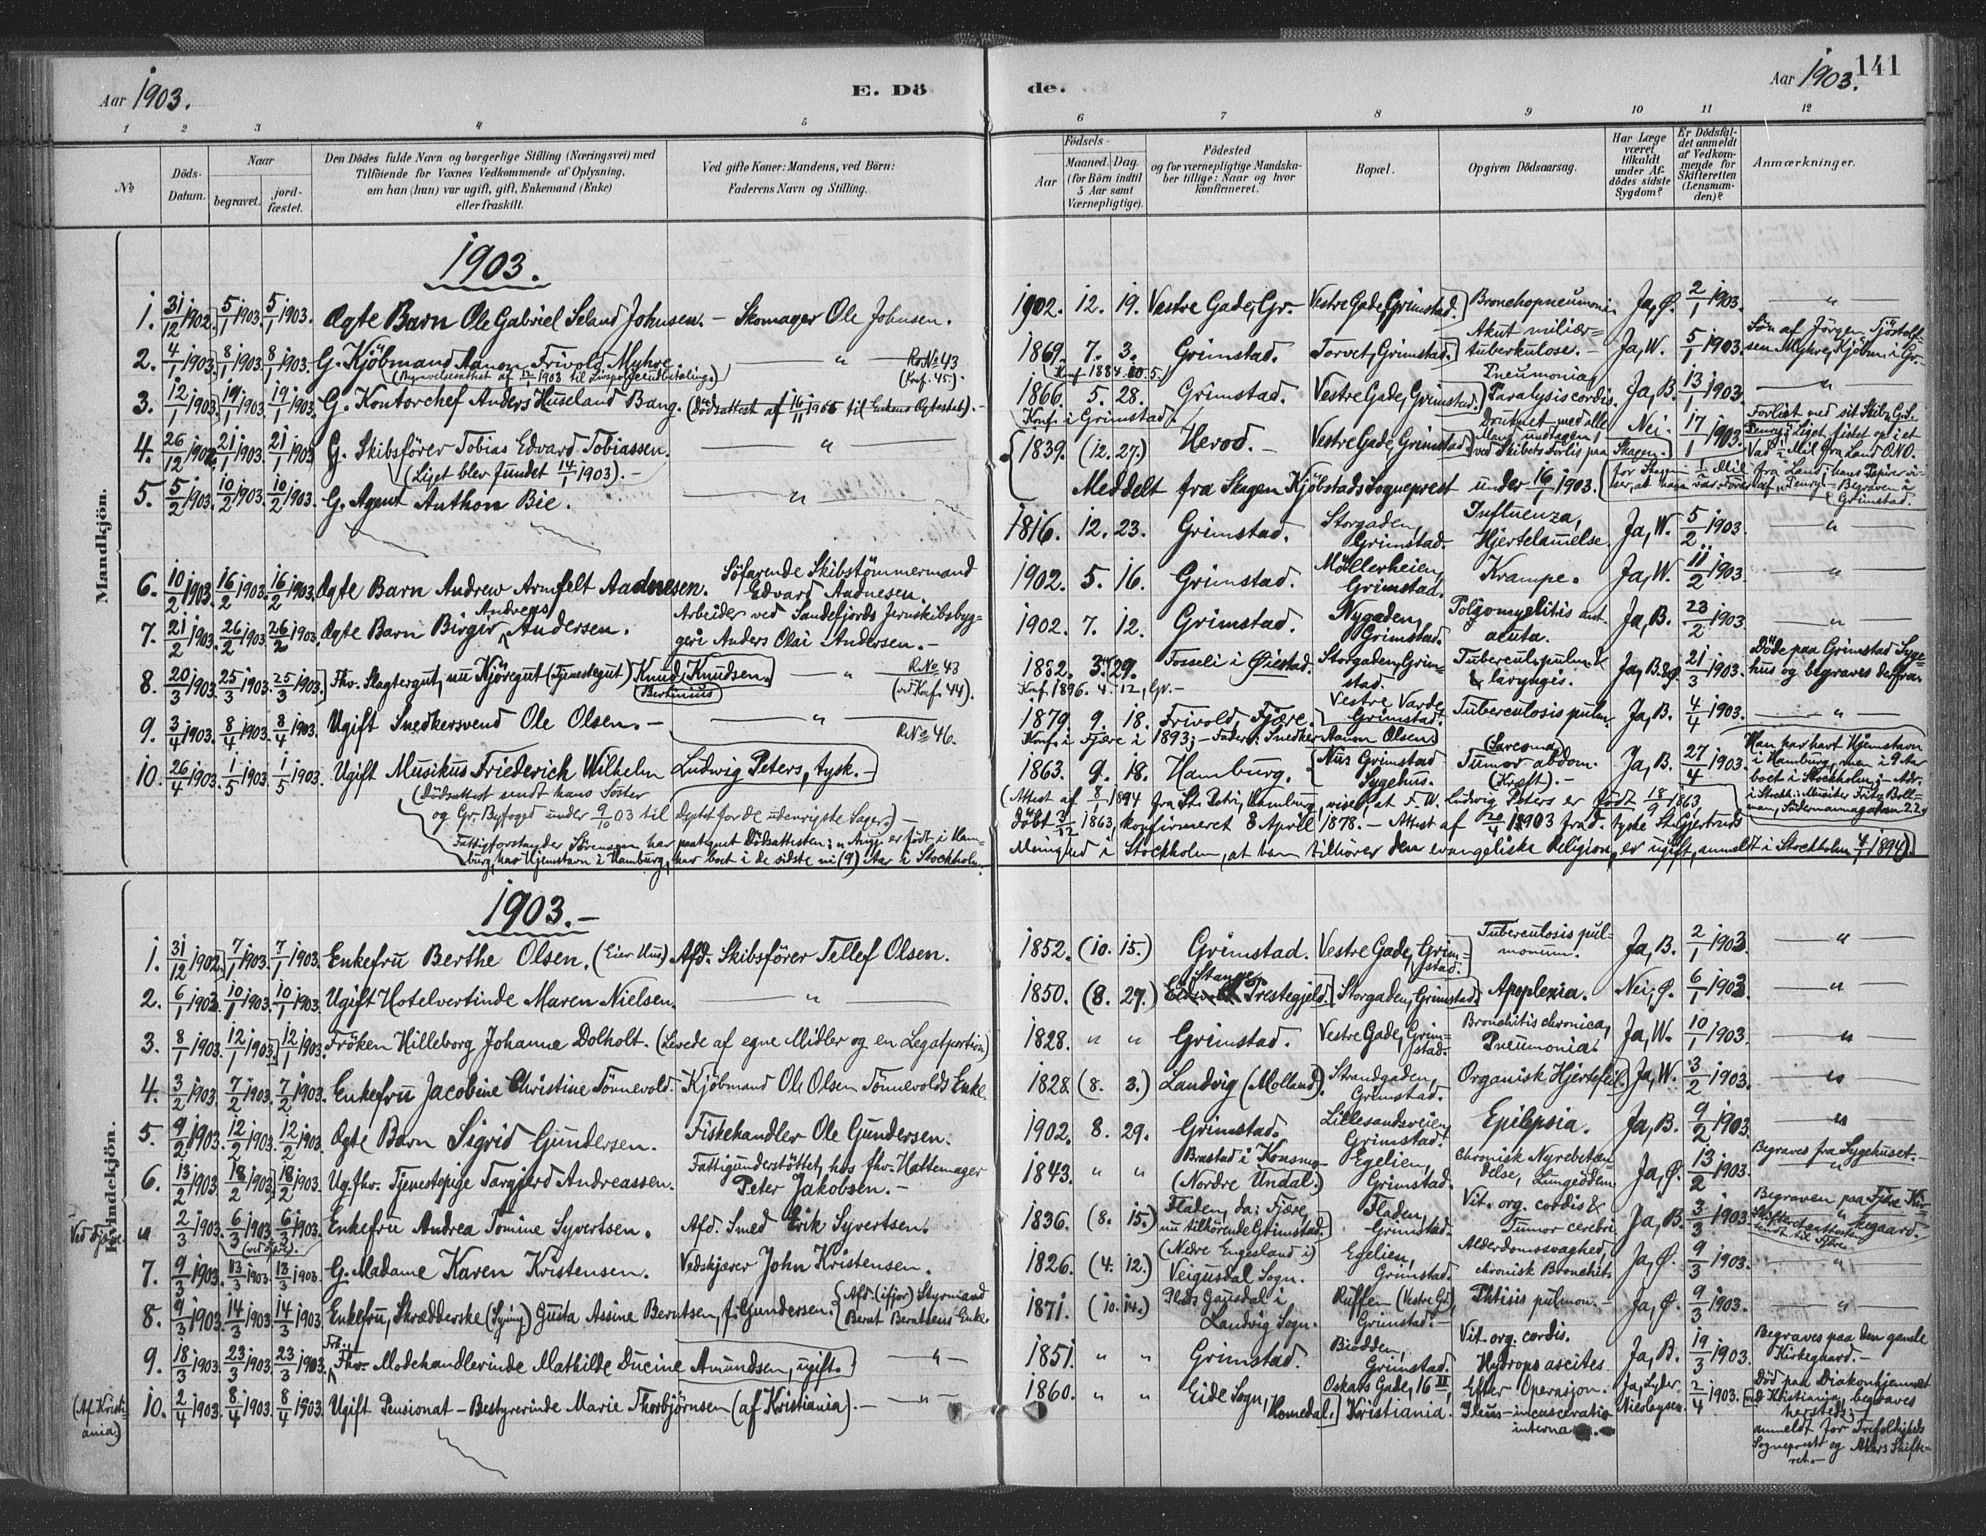 Aar 1903. E. Döde. Aar 1903. 141
1 2 3 4 5 6 7 8 9 10 11 12
№ Döds-Datum. Naar begravet. jordfæstet. Den Dödes fulde Navn og borgerlige Stilling (Næringsvei) med Tilföiende for Voxnes Vedkommende af Oplysning, om han (hun) var ugift, gift, Enkemand (Enke) eller fraskilt. Ved gifte Koner: Mandens, ved Börn: Faderens Navn og Stilling. Födsels- Aar Maaned. Dag. (for Börn indtil 5 Aar samt Værnepligtige). Födested og for værnepligtige Mandskaber tillige: Naar og hvor konfirmeret. Bopæl. Opgiven Dödsaarsag. Har Læge været tilkaldt under Afdödes sidste Sygdom? Er Dödsfaldet anmeldt af Vedkommende for Skifteretten (Lensmanden)? Anmærkninger.
Mandkjön.
1903.
1. 31/12 1902. 5/1 1903. 5/1 1903. Ægte Barn Ole Gabriel Seland Johnsen. — Skomager Ole Johnsen. 1902. 12. 19. Vestre Gade, Gr. Vestre Gade, Grimstad. Bronchopneumoni Ja, Ø. 2/1 1903. — " —
2. 4/1 1903. 8/1 1903. 8/1 1903. G. Kjöbmand Aanon Frivold Myhre — " — R.№ 43 (Conf. 45). 1869. 7. 3. Grimstad. Torvet, Grimstad. Akut miliær-tuberkulose. — Ja, W. 5/1 1903. Sön af Jörgen Tjöstolfsen Myhre, Kjöbm. i Gr.
3. 12/1 1903. 19/1 1903. 19/1 1903. G. Kontorchef Anders Huseland Bang. (Dödsattest af 16/11 til Enkens Ægteskab). — 1866. 5. 28. Grimstad. Vestre Gade, Grimstad. Pneumonia, Paralysis cordis. Ja, B. 13/1 1903. — " —
Konf. i Grimstad
4. 26/12 1902. 21/1 1903. 21/1 1903. G. Skibsförer Tobias Edvard Tobiassen. — " — 1839. (12. 27.) Herod. — Vestre Gade Grimstad Druknet med alle Mand undtagen 1 ved Skibets Forlis paa Skagen. Nei. 17/1 1903. Forlist med sit Skib
(Liget blev fundet 14/1 1903). —
Meddelt fra Skagen Kjöbstads Sogneprest under 16/1 1903.
5. 5/2 1903. 10/2 1903. 10/2 1903. G. Agent Anthon Bie. — " — 1816. 12. 23. Grimstad. Storgaden, Grimstad. Influenza, Hjertelamelse. Ja, W. 5/2 1903. — " —
6. 10/2 1903. 16/2 1903. 16/2 1903. Ægte Barn Andrew Arnfelt Aadnesen. Söfarende Skibstömmermand Edvard Aadnesen. 1902. 5. 16. Grimstad. Möllerheien, Grimstad. Krampe. Ja, W. 11/2 1903. — " —
7. 21/2 1903. 26/2 1903. 26/2 1903. Ægte Barn Birgir Andreas Andersen. Arbeider ved Sandefjords Jernskibsbyggeri Anders Olai Andersen. — 1902. 7. 12. Grimstad. Nygaden, Grimstad. Poliomyelitis ant. acuta. Ja, B. 23/2 1903. — " —
8. 20/3 1903. 25/3 1903. 25/3 1903. Fhv. Slagtergut, nu Kjöregut (Tjenestegut) Knud Bertinius Knudsen. — " — R.№ 43 (ved Knf. 44). 1882. 3. 29. Fosseli i Øiestad. Storgaden, Grimstad. Tubercul. pulm. & laryngis. Ja, B. & Ø. 21/3 1903. Döde paa Grimstad Sygehus og begraves derfra.
Knf. 1896. 4. 12, Gr. —
9. 3/4 1903. 8/4 1903. 8/4 1903. Ugift Snedkersvend Ole Olsen. — — " — R.№ 46. 1879. 9. 18. Frivold, Fjære. Vestre Varde, Grimstad. Tuberculosis pulm. Ja, B. 4/4 1903. — " —
Konf. i Fjære i 1893; — Fader: Snedker Aanon Olsen.
10. 26/4 1903. 1/5 1903. 1/5 1903. Ugift Musikus Friederich Wilhelm Ludwig Peters, tysk. — 1863. 9. 18. Hamburg. Nus Grimstad Sygehus. (Sarcoma) Tumor abdom. (Kræft). — Ja, B. 27/4 1903. Han har havt Hjemstavn i Hamburg, men i 9 Aar boet i Stockholm; — Adr. i Stockh.: Musiker Fritz Bollman, Södermannagatan 22.
(Dödsattest sendt hans Söster og Gr. Byfoged under 9/10 03 til Deptet for de udenrigske Sager). —
Fattigforstander Sörensen har paategnet Dödsattesten: "Angj. er född i Hamburg, har Hjemstavn i Hamburg, har boet i de sidste ni (9) Aar i Stockholm.
(Attest af 8/1 1894 fra St. Petri, Hamburg, viser, at F. W. Ludwig Peters er född 18/9 1863,
döbt 1863, konfirmeret 8 April 1878. — Attest af 20/4 1903 fra d. tyske St. Gjertrud
Menighed i Stockholm, at han tilhörer den evangeliske Religion, er ugift, anmeldt i Stockholm 1894).
Kvindekjön.
1903. —
1. 31/12 1902. 7/1 1903. 7/1 1903. Enkefru Berthe Olsen. (Eier Hus) Afd. Skibsförer Tellef Olsen. 1852. (10. 15.) Grimstad. Vestre Gade, Grimstad. Tuberculosis pulmonum. Ja, B. 2/1 1903. — " —
2. 6/1 1903. 10/1 1903. 10/1 1903. Ugift Hotelvertinde Maren Nielsen. — " — 1850. (8. 27.) Stange Prestegjeld. Storgaden, Grimstad. Apoplexia. Nei, Ø. 6/1 1903
3. 8/1 1903. 12/1 1903. 12/1 1903. Fröken Hilleborg Johanne Dolholt. (Levede af egne Midler og en Legatportion) 1828. " " Grimstad. Vestre Gade, Grimstad. Bronchitis chronica, Pneumonia. Ja, W. 10/1 1903. "
4. 3/2 1903. 7/2 1903. 7/2 1903. Enkefru Jacobine Christine Tönnevold. Kjöbmand Ole Olsen Tönnevolds Enke. 1828. (8. 3.) Landvig (Molland). Strandgaden, Grimstad. Organisk Hjertefeil. Ja, W. 3/2 1903. — " —
5. 9/2 1903. 12/2 1903. 12/2 1903. Ægte Barn Sigrid Gundersen. Fiskehandler Ole Gundersen. 1902. 8. 29. Grimstad. Lillesandsveien, Grimstad. Epilepsia. Ja, B. 9/2 1903. "
6. 13/2 1903. 18/2 1903. 18/2 1903. Ug. fhv. Tjenestepige Targjerd Andreassen. Fattigunderstöttet, hos fhv. Hattemager Peter Jakobsen. — 1843. " " Brastad i Konsmo (Nordre Undal.) Egelien, Grimstad. Chronisk Nyrebetændelse, Lungeödem. Ja, Ø. 13/2 1903. Begraves fra Sygehuset. —
Ved Fjære. " 2/3 1903. 6/3 1903. 6/3 1903. Enkefru Andrea Tomine Syvertsen. Afd. Smed Erik Syvertsen. 1836. (8. 15.) Fladen, da: Fjære, nu tilhörende Grimstad. Fladen, Grimstad. Vit. org. cordis & Tumor cerebri Ja, B. 3/3 1903. Begraven paa Fjære Kirkegaard. Skifteretsattesten sendt til Fjære.
(ved Fjære).
7. 9/3 1903. 13/3 1903. 13/3 1903. G. Madame Karen Kristensen. Vedskjærer John Kristensen. 1826. (4. 12.) (Nedre Engesland i) Veigusdal Sogn. Egelien, Grimstad. Alderdomssvaghed, chronisk Bronchit. Ja, Ø. 9/3 1903. "
8. 9/3 1903. 14/3 1903. 14/3 1903. Enkefru, Skrædderske (Sying) Gusta Assine Berntsen, f. Gundersen. Afd. (ifjor) Styrmand Bernt Berntsens Enke. 1871. (10. 14.) Plds Gausdal i Landvig Sogn. Ruffen (Vestre Gd.), Grimstad. — Phtisis pulmon. — Ja, Ø. 9/3 1903. — " —
9. 18/3 1903. 23/3 1903. 23/3 1903. Frk. Fhv. Modehandlerinde Mathilde Ducine Amundsen, ugift. — " — 1851. " " Grimstad. Biodden, Grimstad. Vit. org. cordis. Hydrops ascites. Ja, B. 19/3 1903. Begraves paa den gamle Kirkegaard. —
(Af Kristiania.) 10. 2/4 1903. 8/4 1903. 8/4 1903. Ugift Pensionat-Bestyrerinde Marie Thorbjörnsen (af Kristiania). — — " — 1860. " " Eide Sogn, Homedal. Oskabs Gade, 16 II, Kristiania. Efter Operasjon. Ileus-incarceratio interna. Ja, Lyder Nicolaysen. 2/4 1903. Död paa Diakonhjemmet ved Kristiania, begraves hersteds; — anmeldt for Trefoldigheds Sogneprest og Akers Skifteret. —